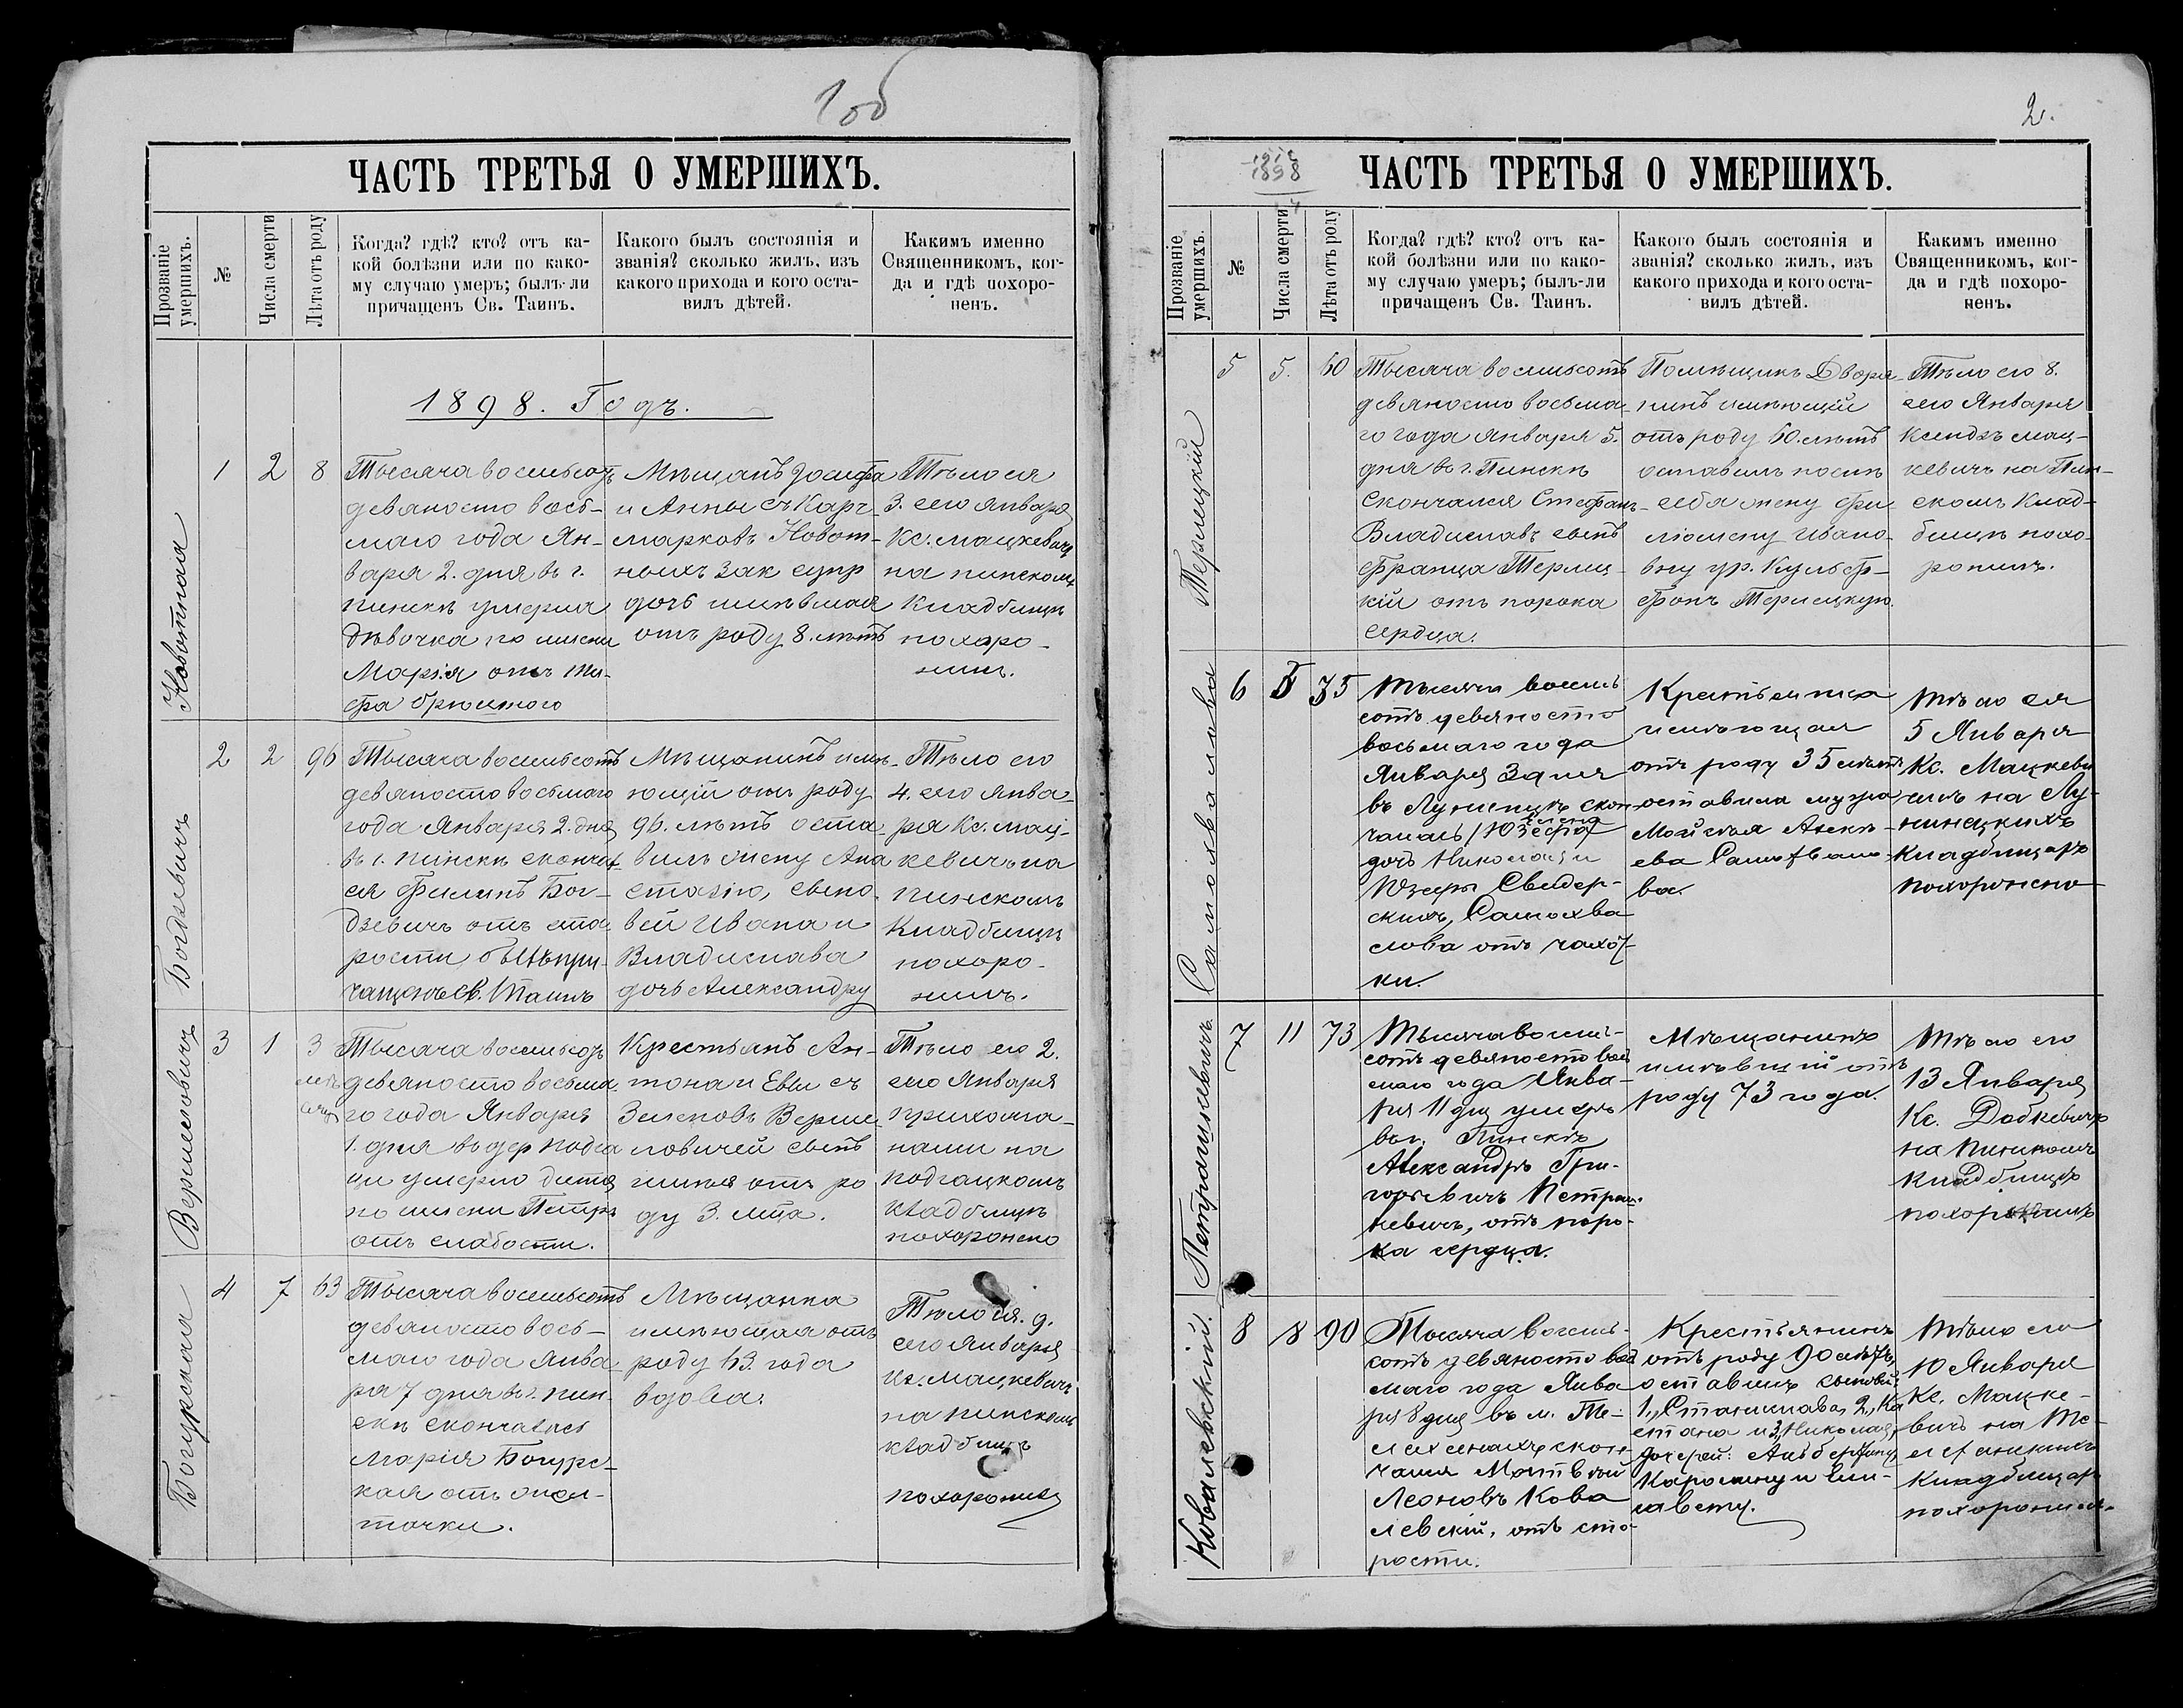 1об
ЧАСТЬ ТРЕТЬЯ О УМЕРШИХЪ.
Прозваніе умершихъ.
№
Числа смерти
Лѣта отъ роду
Когда? гдѣ? кто? отъ ка-
кой болѣзни или по како-
му случаю умеръ; былъ-ли
причащенъ Св. Таинъ.
Какого былъ состоянія и
званія? сколько жилъ, изъ
какого прихода и кого оста-
вилъ дѣтей.
Какимъ именно
Священникомъ, ког-
да и гдѣ похоро-
ненъ.
1898. Годъ.
Новотная
1
2
8
Тысяча восемьсотъ
девяносто вось-
маго года Ян-
варя 2. дня въ г.
Пинскѣ умерла
дѣвочка по имени
Марія отъ ти-
фа брюшного
Мѣщанъ Іосифа
и Анны съ
Новот-
ныхъ зак супр
дочь имѣвшая
отъ роду 8. лѣтъ
Тѣло ея
3. сего января
Кс. Мацкевичъ
на пинскомъ
Кладбищѣ
похоро-
нилъ.
Богдзевичъ
2
2
96
Тысяча восемьсотъ
девяносто восьмаго
года Января 2. дня
въ г. Пинскѣ скончал
ся Филипъ Бог-
дзевичъ отъ ста-
рости былъ при-
чащенъ Св. Таинъ
Мѣщанинъ имѣ-
ющій отъ роду
96. лѣтъ оста-
вилъ жену Ана
стазію, сыно-
вей Ивана и
Владислава
дочь Александру
Тѣло его
4. сего янва-
ря Кс. Мац-
кевичъ на
Пинскомъ
Кладбищѣ
похоро-
нилъ.
Вермеловичъ
3
1
3
Тысяча восемьсотъ
девяносто восьма-
го года Января
1. дня въ дер
умерло дитя
по имени Петръ
отъ слабости.
Крестьянъ Ан-
тона и Евы съ
ловичей сынъ
отъ ро
ду 3.
Тѣло его 2.
сего Января
прихожа-
нами на
кладбищѣ
похоронено
Богурская
4
7
63
Тысяча восемьсотъ
девяносто вось-
маго года Янва
ря 7 дня въ г. Пин-
скѣ скончалась
Марія Богурс-
кая отъ
Мѣщанка
имѣющая отъ
роду 63. года
вдова.
Тѣло ея. 9.
сего Января
Кс. Мацкевичъ
на Пинскомъ
кладбищѣ
похоронилъ
2.
1898
ЧАСТЬ ТРЕТЬЯ О УМЕРШИХЪ.
Прозваніе умершихъ.
№
Числа смерти
Лѣта отъ роду
Когда? гдѣ? кто? отъ ка-
кой болѣзни или по како-
му случаю умеръ; былъ-ли
причащенъ Св. Таинъ.
Какого былъ состоянія и
званія? сколько жилъ, изъ
какого прихода и кого оста-
вилъ дѣтей.
Какимъ именно
Священникомъ, ког-
да и гдѣ похоро-
ненъ.
Терлецкій
5
5.
60
Тысяча восемьсотъ
девяносто восьма-
го года Января 5.
дня въ г. Пинскѣ
Скончался Стефанъ-
Владиславъ сынъ
Франца Терлец-
кій отъ порока
сердца.
Помѣщикъ Дворя-
нинъ имѣющій
отъ роду 60. лѣтъ
оставилъ послѣ
себя жену Фи
ломену Ивано-
вну ур. Кульф-
фонъ Терлецкую.
Тѣло его 8.
сего Января
Ксендзъ Мац-
кевичъ на Пин-
скомъ Клад-
бищѣ похо-
ронилъ.
Самохвалова
6
5
35
Тысяча восемь
сотъ девяносто
восьмаго года
Января 3 дня
въ Лунинцѣ скон-
чалась /Юзефа/
Елена
дочь Николая и
Юзефы Свидер-
скихъ, Самохва
лова отъ чахот-
ки.
Крестьянка
имѣющая
отъ роду 35 лѣтъ
оставила мужа
Мойсея Алекс-
ева Самохвало-
ва.
Тѣло ея
5 Января
Кс. Мацкеви
чемъ на Лу-
нинецкихъ
кладбищахъ
похоронено
Петрашкевичъ.
7
11
73
Тысяча восемь-
сотъ девяносто вось
маго года Янва-
ря 11 дня умеръ
въ г. Пинскѣ
Александръ Гри-
горьевичъ Петраш-
кевичъ, отъ поро-
ка сердца.
Мѣщанинъ
имѣвшій отъ
роду 73 года.
Тѣло его
13 Января
Кс. Добкевичъ
на Пинскомъ
кладбищѣ
похоронилъ
Ковалевскій.
8
8
90
Тысяча восемь-
сотъ девяносто вось
маго года Янва
ря 8 дня въ м. Те-
леханахъ скон-
чался Матвѣй
Леоновъ Кова
левскій, отъ ста-
рости.
Крестьянинъ
отъ роду 90 лѣтъ,
оставилъ сыновей:
1., Станислава, 2., Ка
етана и 3, Николая,
дочерей: Альбертину,
Каролину и Ели-
завету.
Тѣло его
10 Января
Кс. Мацке-
вичъ на Те-
леханскихъ
кладбищахъ
похоронилъ.